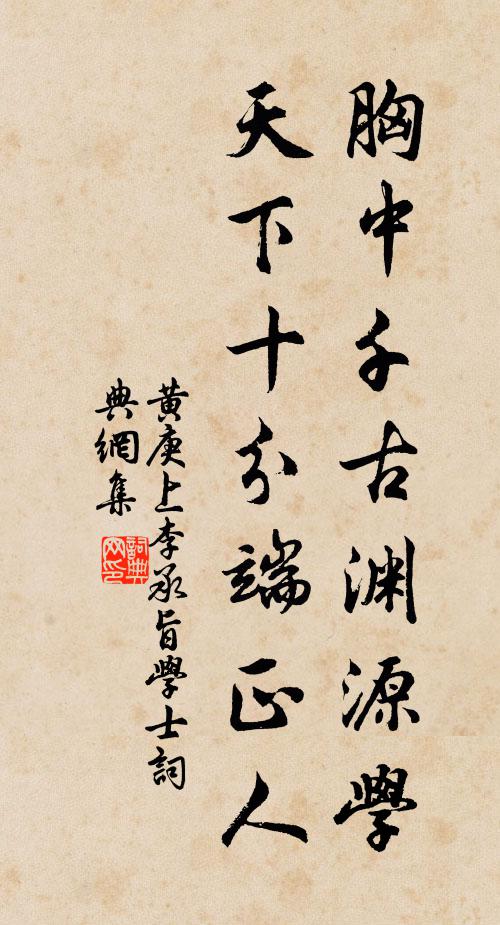 胸中千古渊源學
天下十分端正人
黄庚上李承旨學士詞
典網集
詞典
网印